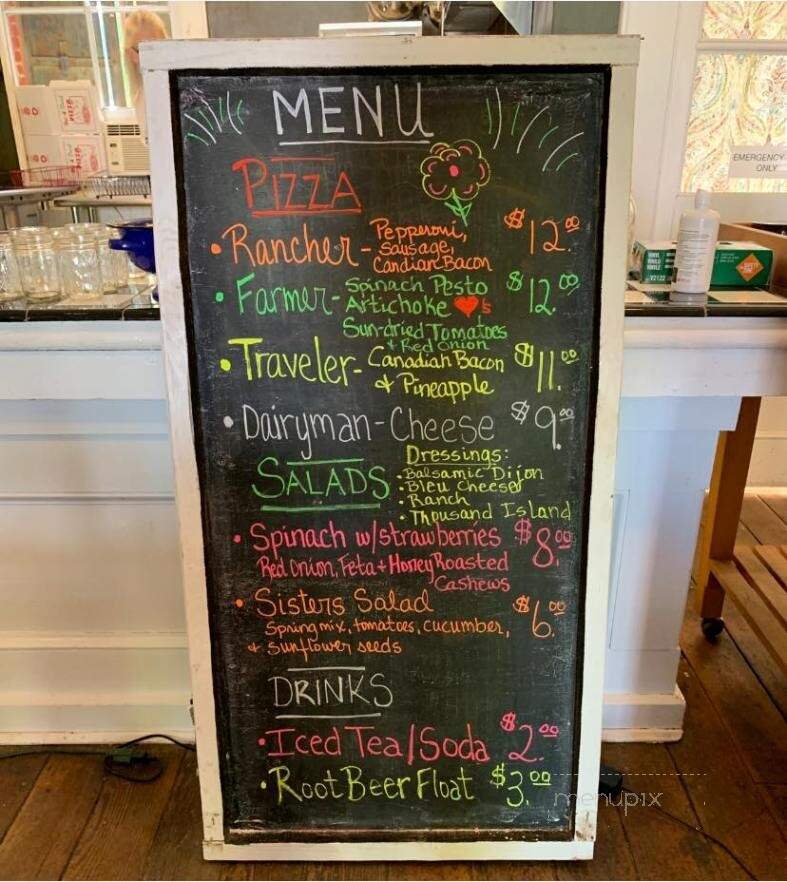 MENU
PIZZA
• Rancher - Pepperoni, $12.00
Sausage,
Candian Bacon
• Farmer - Spinach Pesto $12.00
Artichoke ♥s
Sun-dried Tomatoes
+ Red Onion
• Traveler - Canadian Bacon $11.00
& Pineapple
• Dairyman - Cheese $9.00
SALADS
Dressings:
• Balsamic Dijon
• Bleu Cheese
• Ranch
• Thousand Island
• Spinach w/strawberries $8.00
Red Onion, Feta + Honey Roasted
Cashews
• Sisters Salad $6.00
Spring mix, tomatoes, cucumber,
+ sunflower seeds
DRINKS
• Iced Tea/Soda $2.00
• Root Beer Float $3.00
EMERGENCY
ONLY
menupix